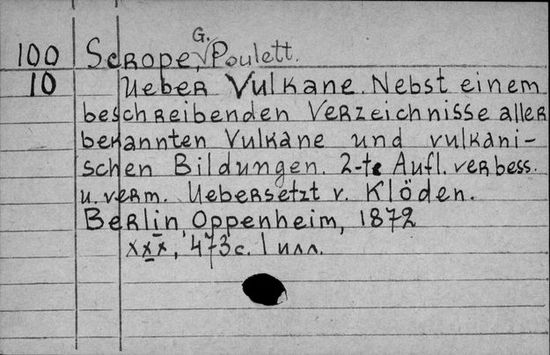 G.
100 Scrope, √Poulett.
10 Ueber Vulkane. Nebst einem
beschreibenden Verzeichnisse aller
bekannten Vulkane und vulkani-
schen Bildungen. 2-te Aufl. verbess.
u. verm. Uebersetzt v. Klöden.
Berlin, Oppenheim, 1872
XXX, 473 с. 1 илл.